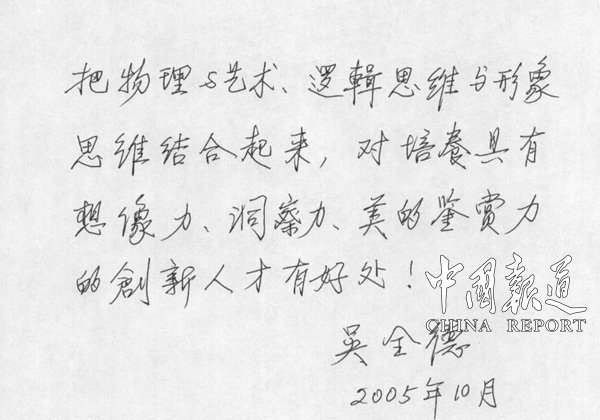 把物理与艺术、逻輯思维与形象
思维结合起来，对培養具有
想像力、洞察力、美的鉴赏力
的創新人才有好处！
中国报道
CHINA REPORT
吴全德
2005年10月